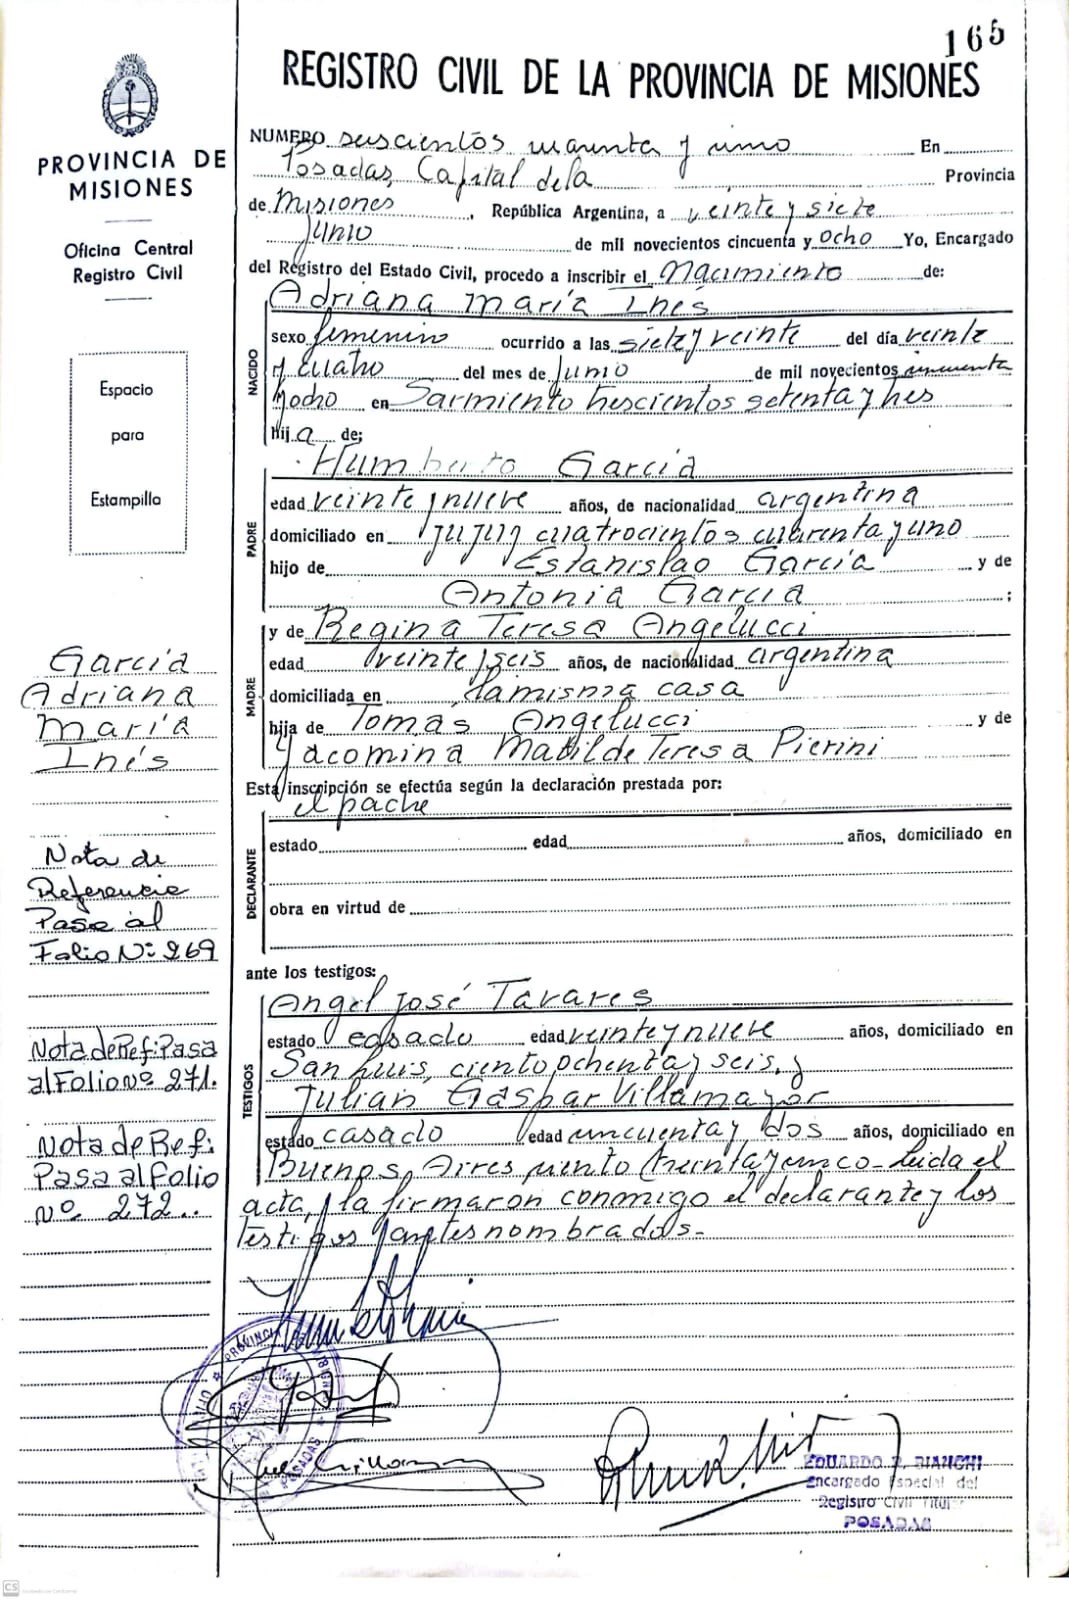 165
REGISTRO CIVIL DE LA PROVINCIA DE MISIONES
PROVINCIA DE
MISIONES
Oficina Central
Registro Civil
Espacio
para
Estampilla
García
Adriana
María
Inés
Nota de
Referencia
Pasa al
Folio Nº 269
Nota de Ref: Pasa
al Folio nº 271.
Nota de Ref:
Pasa al folio
nº 272..
NUMERO seiscientos cuarenta y uno En
Posadas, Capital de la Provincia
de Misiones, República Argentina, a veinte y siete
Junio de mil novecientos cincuenta y ocho Yo, Encargado
del Registro del Estado Civil, procedo a inscribir el Nacimiento de:
NACIDO
Adriana María Inés
sexo femenino ocurrido a las siete y veinte del día veinte
y cuatro del mes de Junio de mil novecientos cincuenta
y ocho en Sarmiento trescientos setenta y tres
Hija de;
PADRE
Humberto García
edad veinte y nueve años, de nacionalidad argentina
domiciliado en Jujuy cuatrocientos cuarenta y uno
hijo de Estanislao García y de
Antonia García ;
MADRE
y de Regina Teresa Angelucci
edad veinte y seis años, de nacionalidad argentina
domiciliada en la misma casa
hija de Tomás Angelucci y de
Jacomina Matilde Teresa Pierini
Esta inscripción se efectúa según la declaración prestada por:
el padre
DECLARANTE
estado edad años, domiciliado en
obra en virtud de
ante los testigos:
TESTIGOS
Angel José Tavares
estado casado edad veinte y nueve años, domiciliado en
San Luis, ciento ochenta y seis, y
Julian Gaspar Villamayor
estado casado edad cincuenta y dos años, domiciliado en
Buenos Aires ciento treinta y cinco - Leida el
acta, la firmaron conmigo el declarante y los
testigos antes nombrados.-
PROVINCIA DE MISIONES
POSADAS
EDUARDO R. BIANCHI
Encargado Especial del
Registro Civil Titular
POSADAS
CS